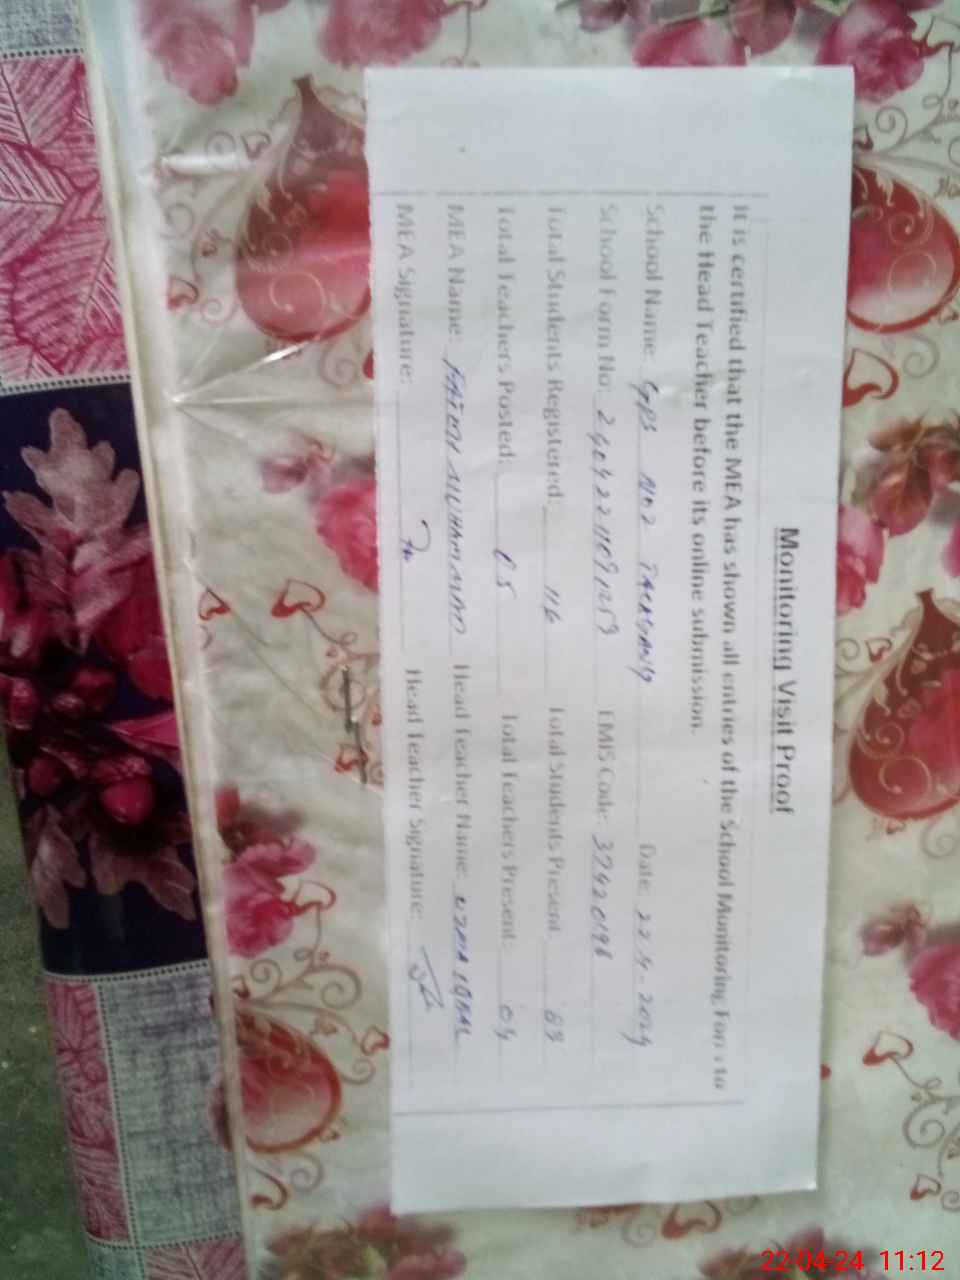 Monitoring Visit Proof
It is certified that the MEA has shown all entries of the School Monitoring Form to
the Head Teacher before its online submission.
School Name: GPS NO2 Date: 22.4.2024
School Form No: EMIS Code: 37420196
Total Students Registered: 116 Total Students Present: 88
Total Teachers Posted: 05 Total Teachers Present: 04
MEA Name: MUHAMMAD Head Teacher Name: UZMA IQBAL
MEA Signature: Head Teacher Signature:
22-04-24 11:12